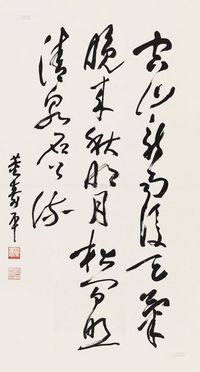 空山新雨後天氣
晚來秋明月松間照
清泉石上流
董壽平